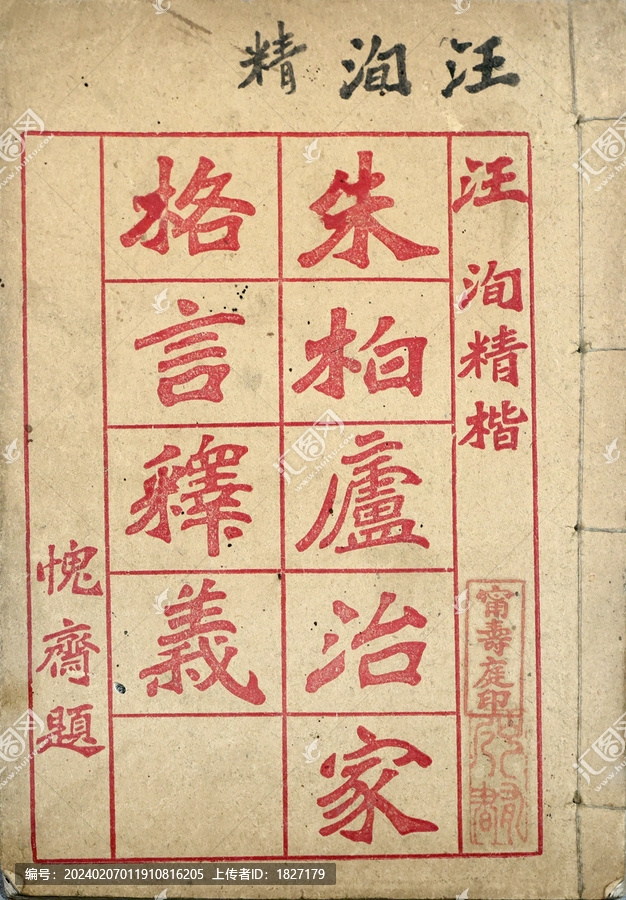 汪洵精
汪洵精楷
朱柏廬治家
格言釋義
愧齋題
甯壽庭
编号: 20240207011910816205 上传者ID: 1827179